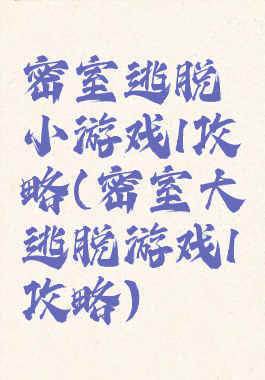 密室逃脱
小游戏1攻
略(密室大
逃脱游戏1
攻略)